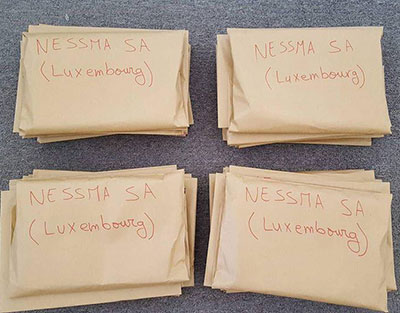 NESSMA SA
(Luxembourg)
NESSMA SA
(Luxembourg)
NESSMA SA
(Luxembourg)
NESSMA SA
(Luxembourg)